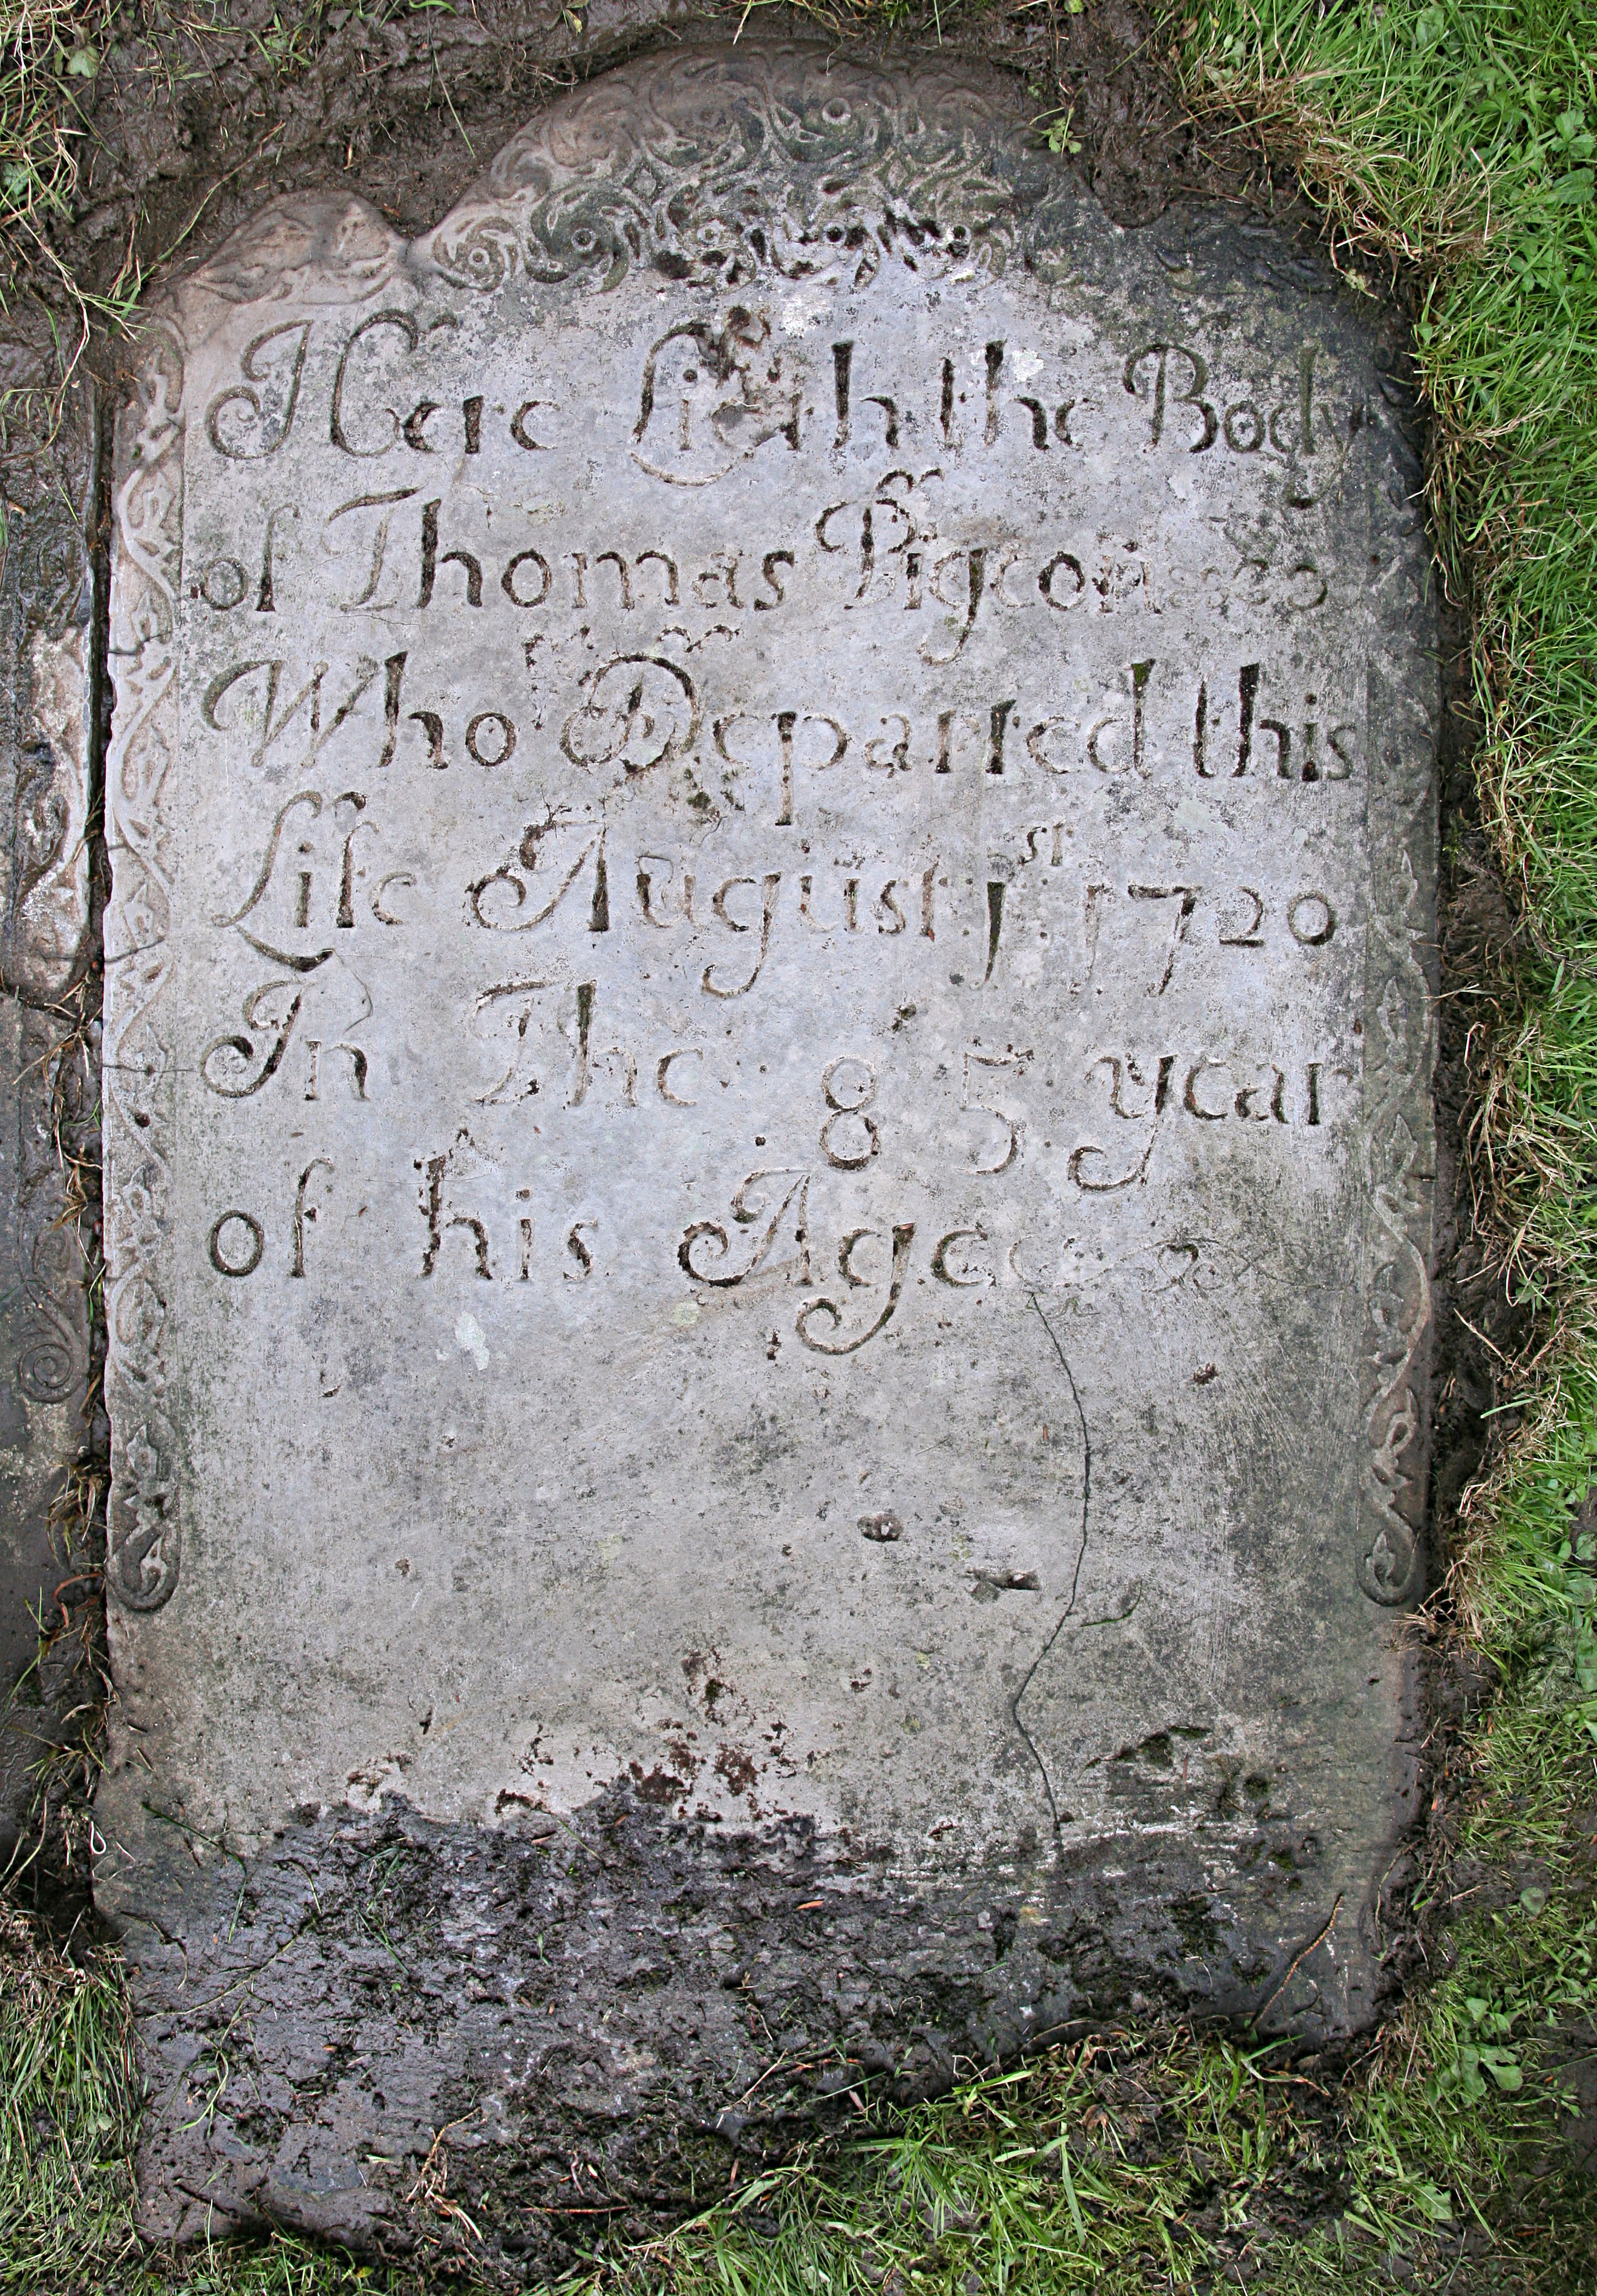 Here Lieth the Body
of Thomas Pigeon
Who Departed this
Life August 1st 1720
In The 85 year
of his Age